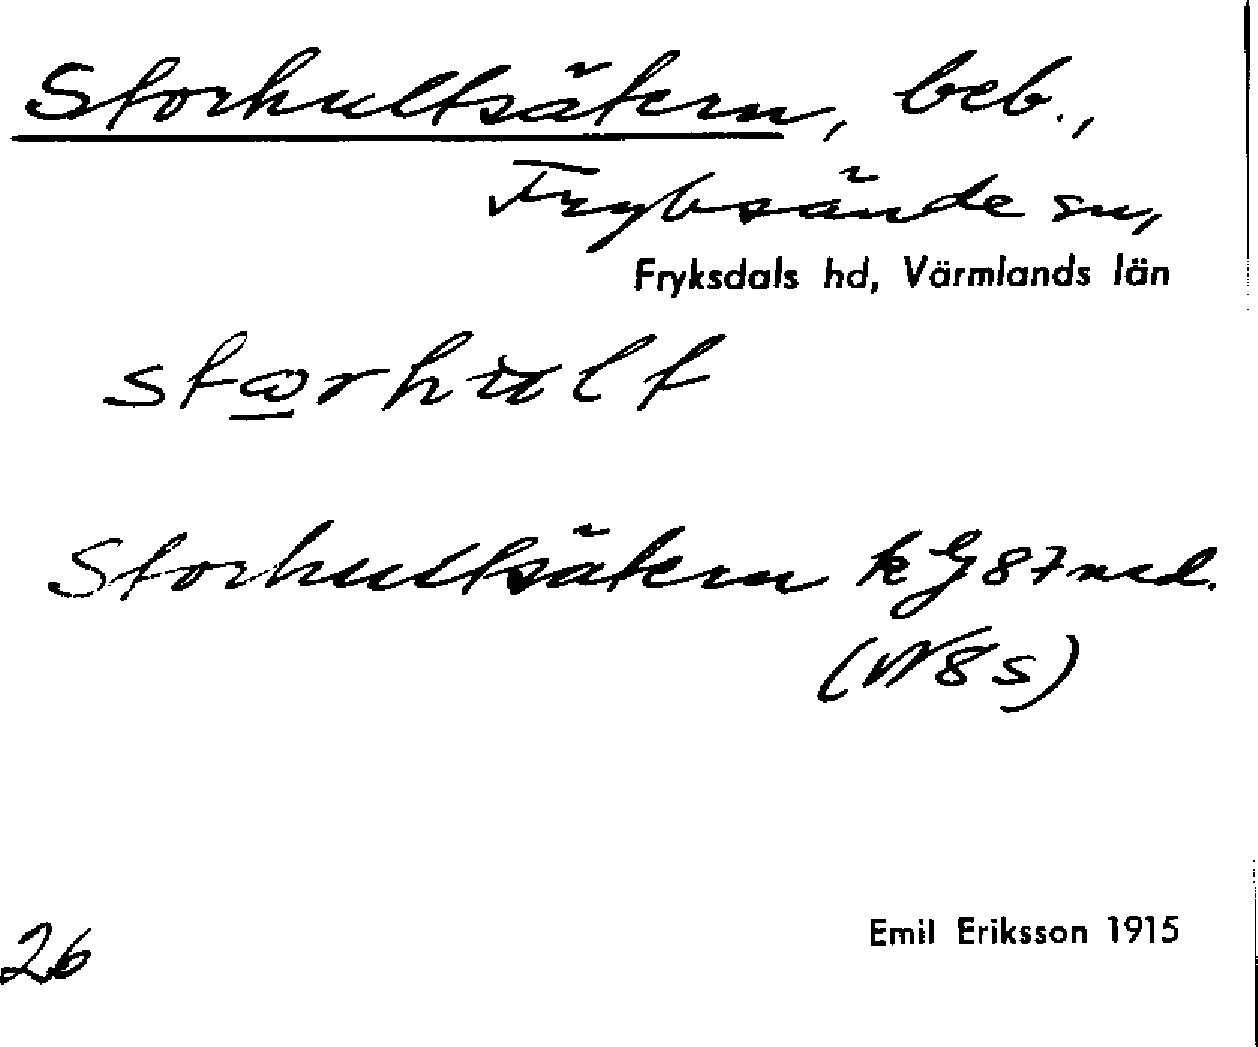 Storhultsätern, beb.,
Fryksände sn,
Fryksdals hd, Värmlands län
Storhultsätern k G 87 ned.
(N 8 s)
26
Emil Eriksson 1915